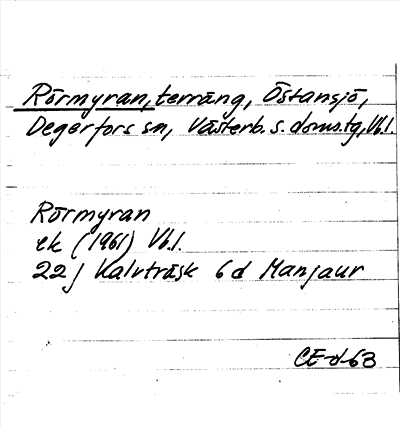 Rörmyran, terräng, Östansjö,
Degerfors sn, Västerb. s. doms.tg, Vb.l.
Rörmyran
ek (1961) Vb.l.
22 j Kalvträsk 6 d Manjaur
CE-d-63